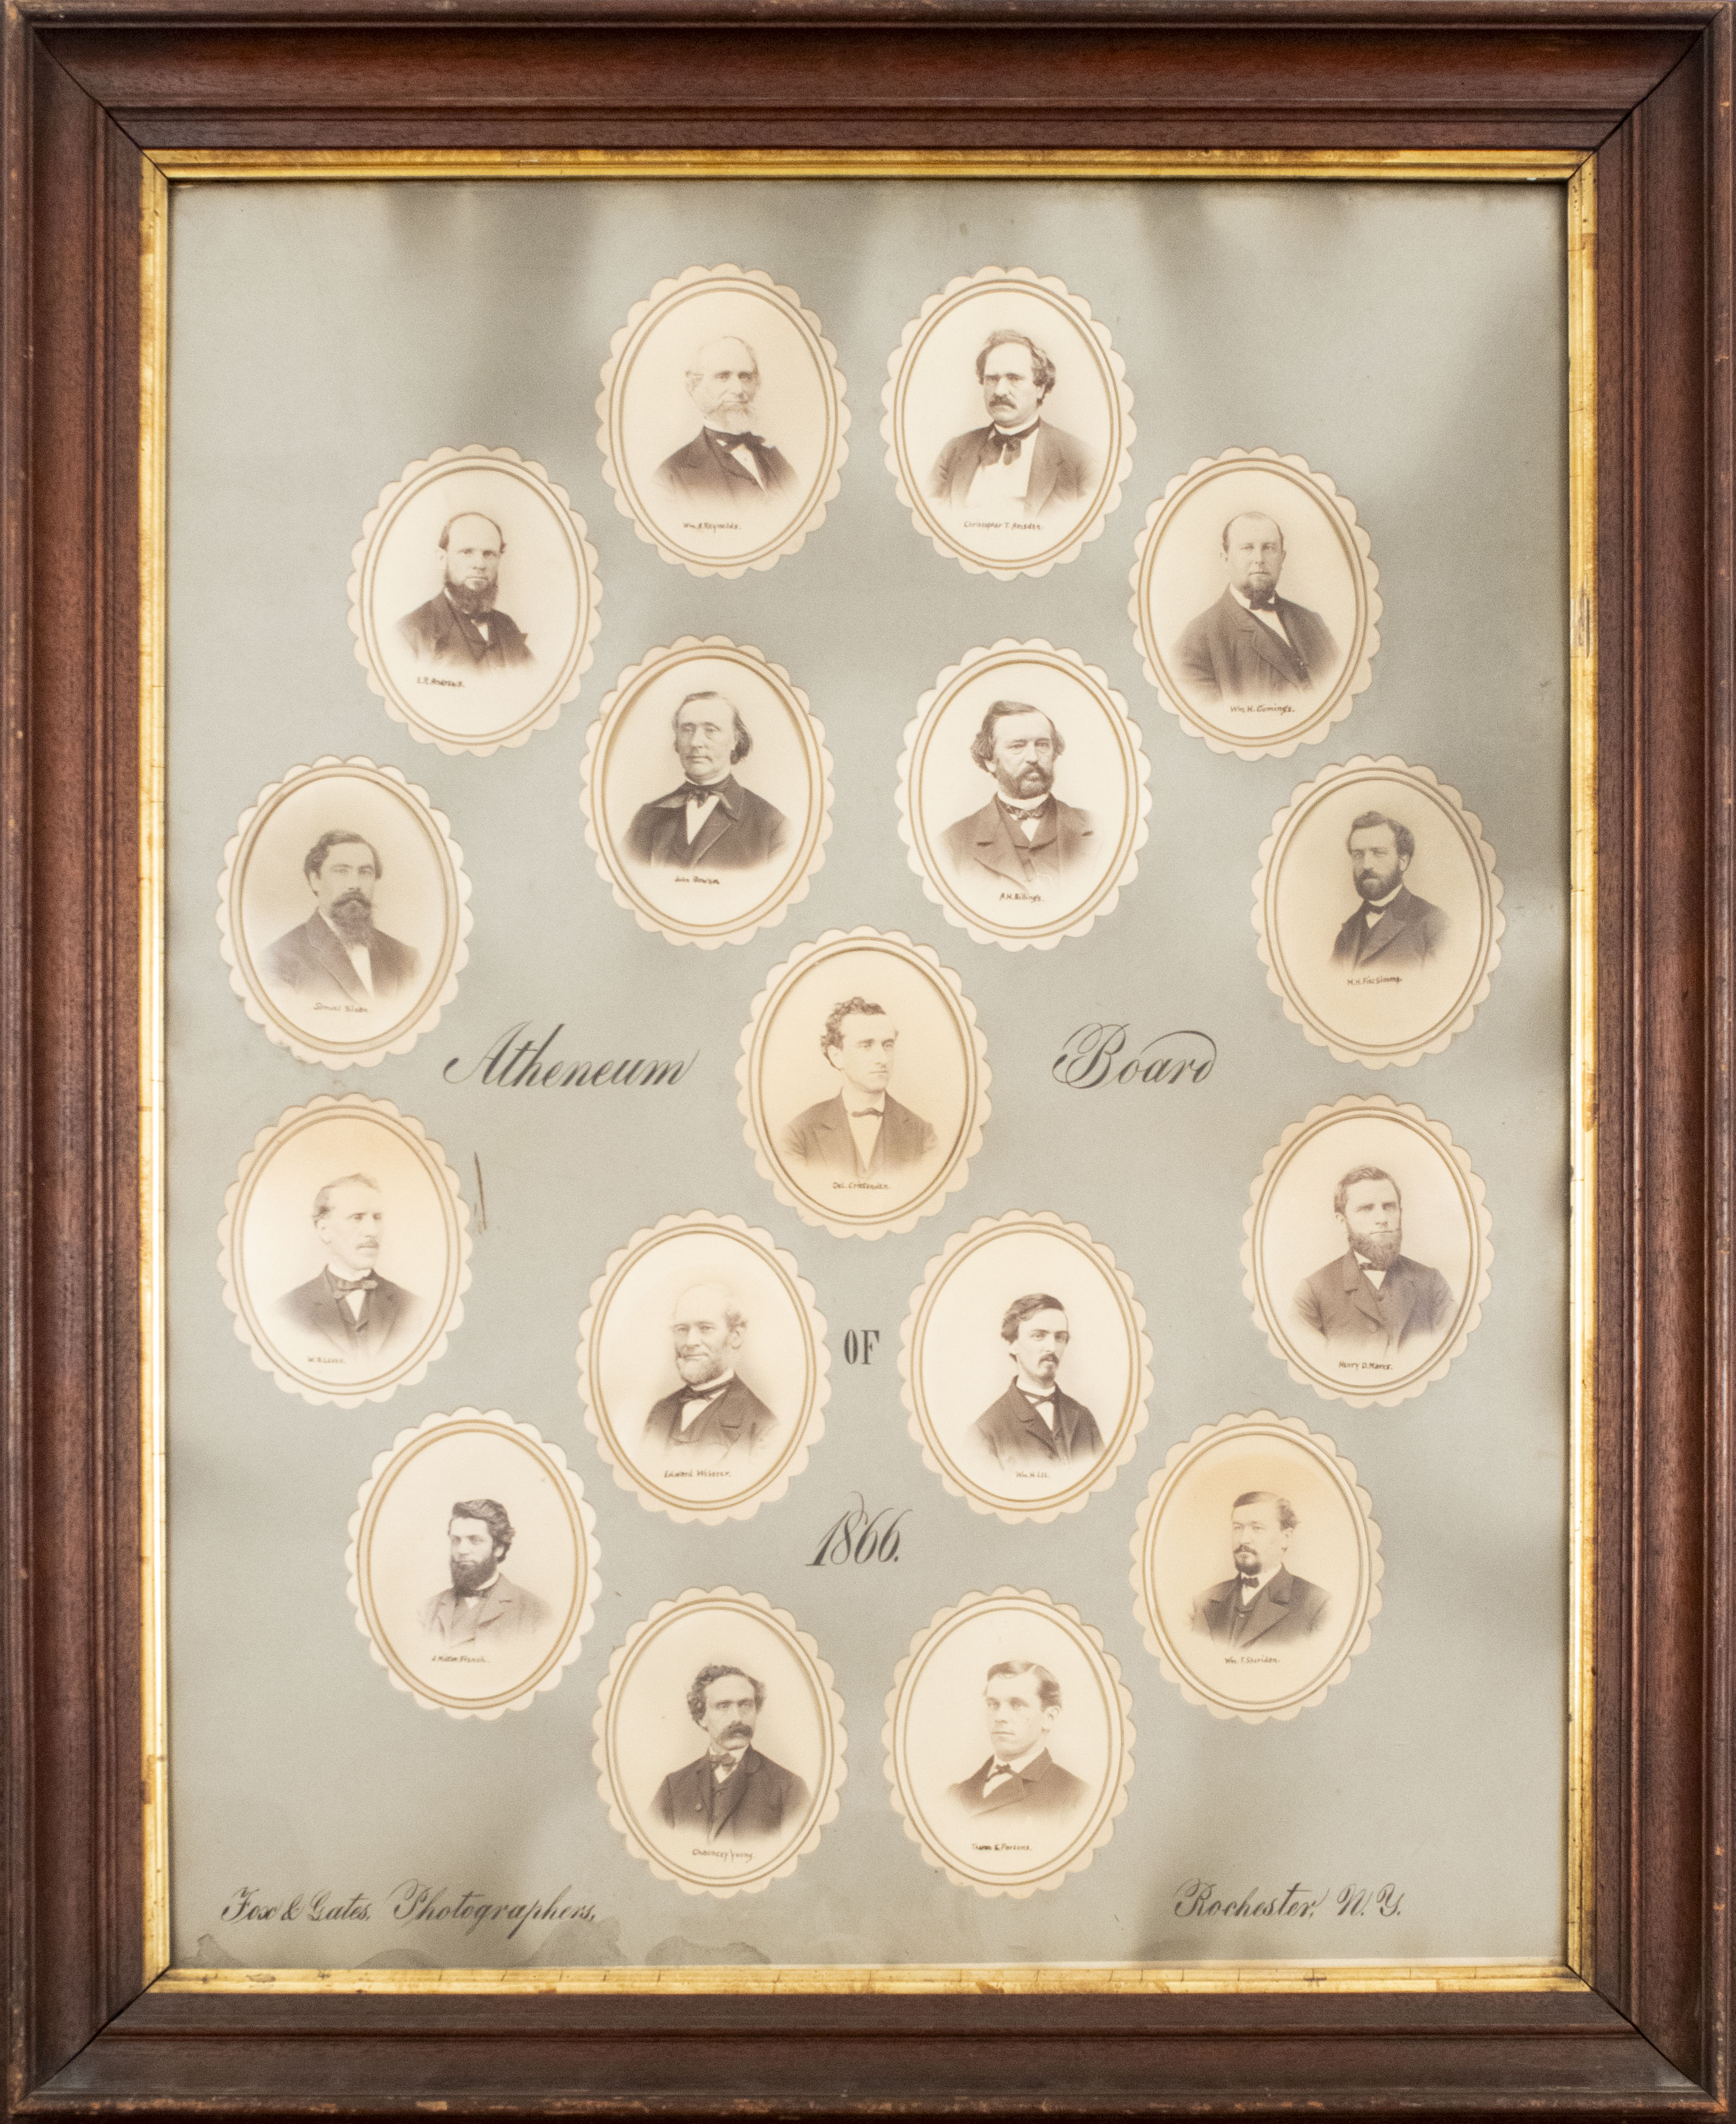 Wm A Reynolds.
Christopher T. Amsden.
E.R. Andrews.
Wm H. Cumings.
John Bower
A.H. Billings.
Samuel Sloan.
M.H. FitzSimons.
Atheneum Board
Del. Crittenden.
Henry D. Marks.
OF
Edward Webster.
Wm. H. Lee.
1866.
J. Milton French.
Wm. F. Sheridan.
Chauncey Young.
E. Parsons.
Fox & Gates, Photographers,
Rochester, N.Y.